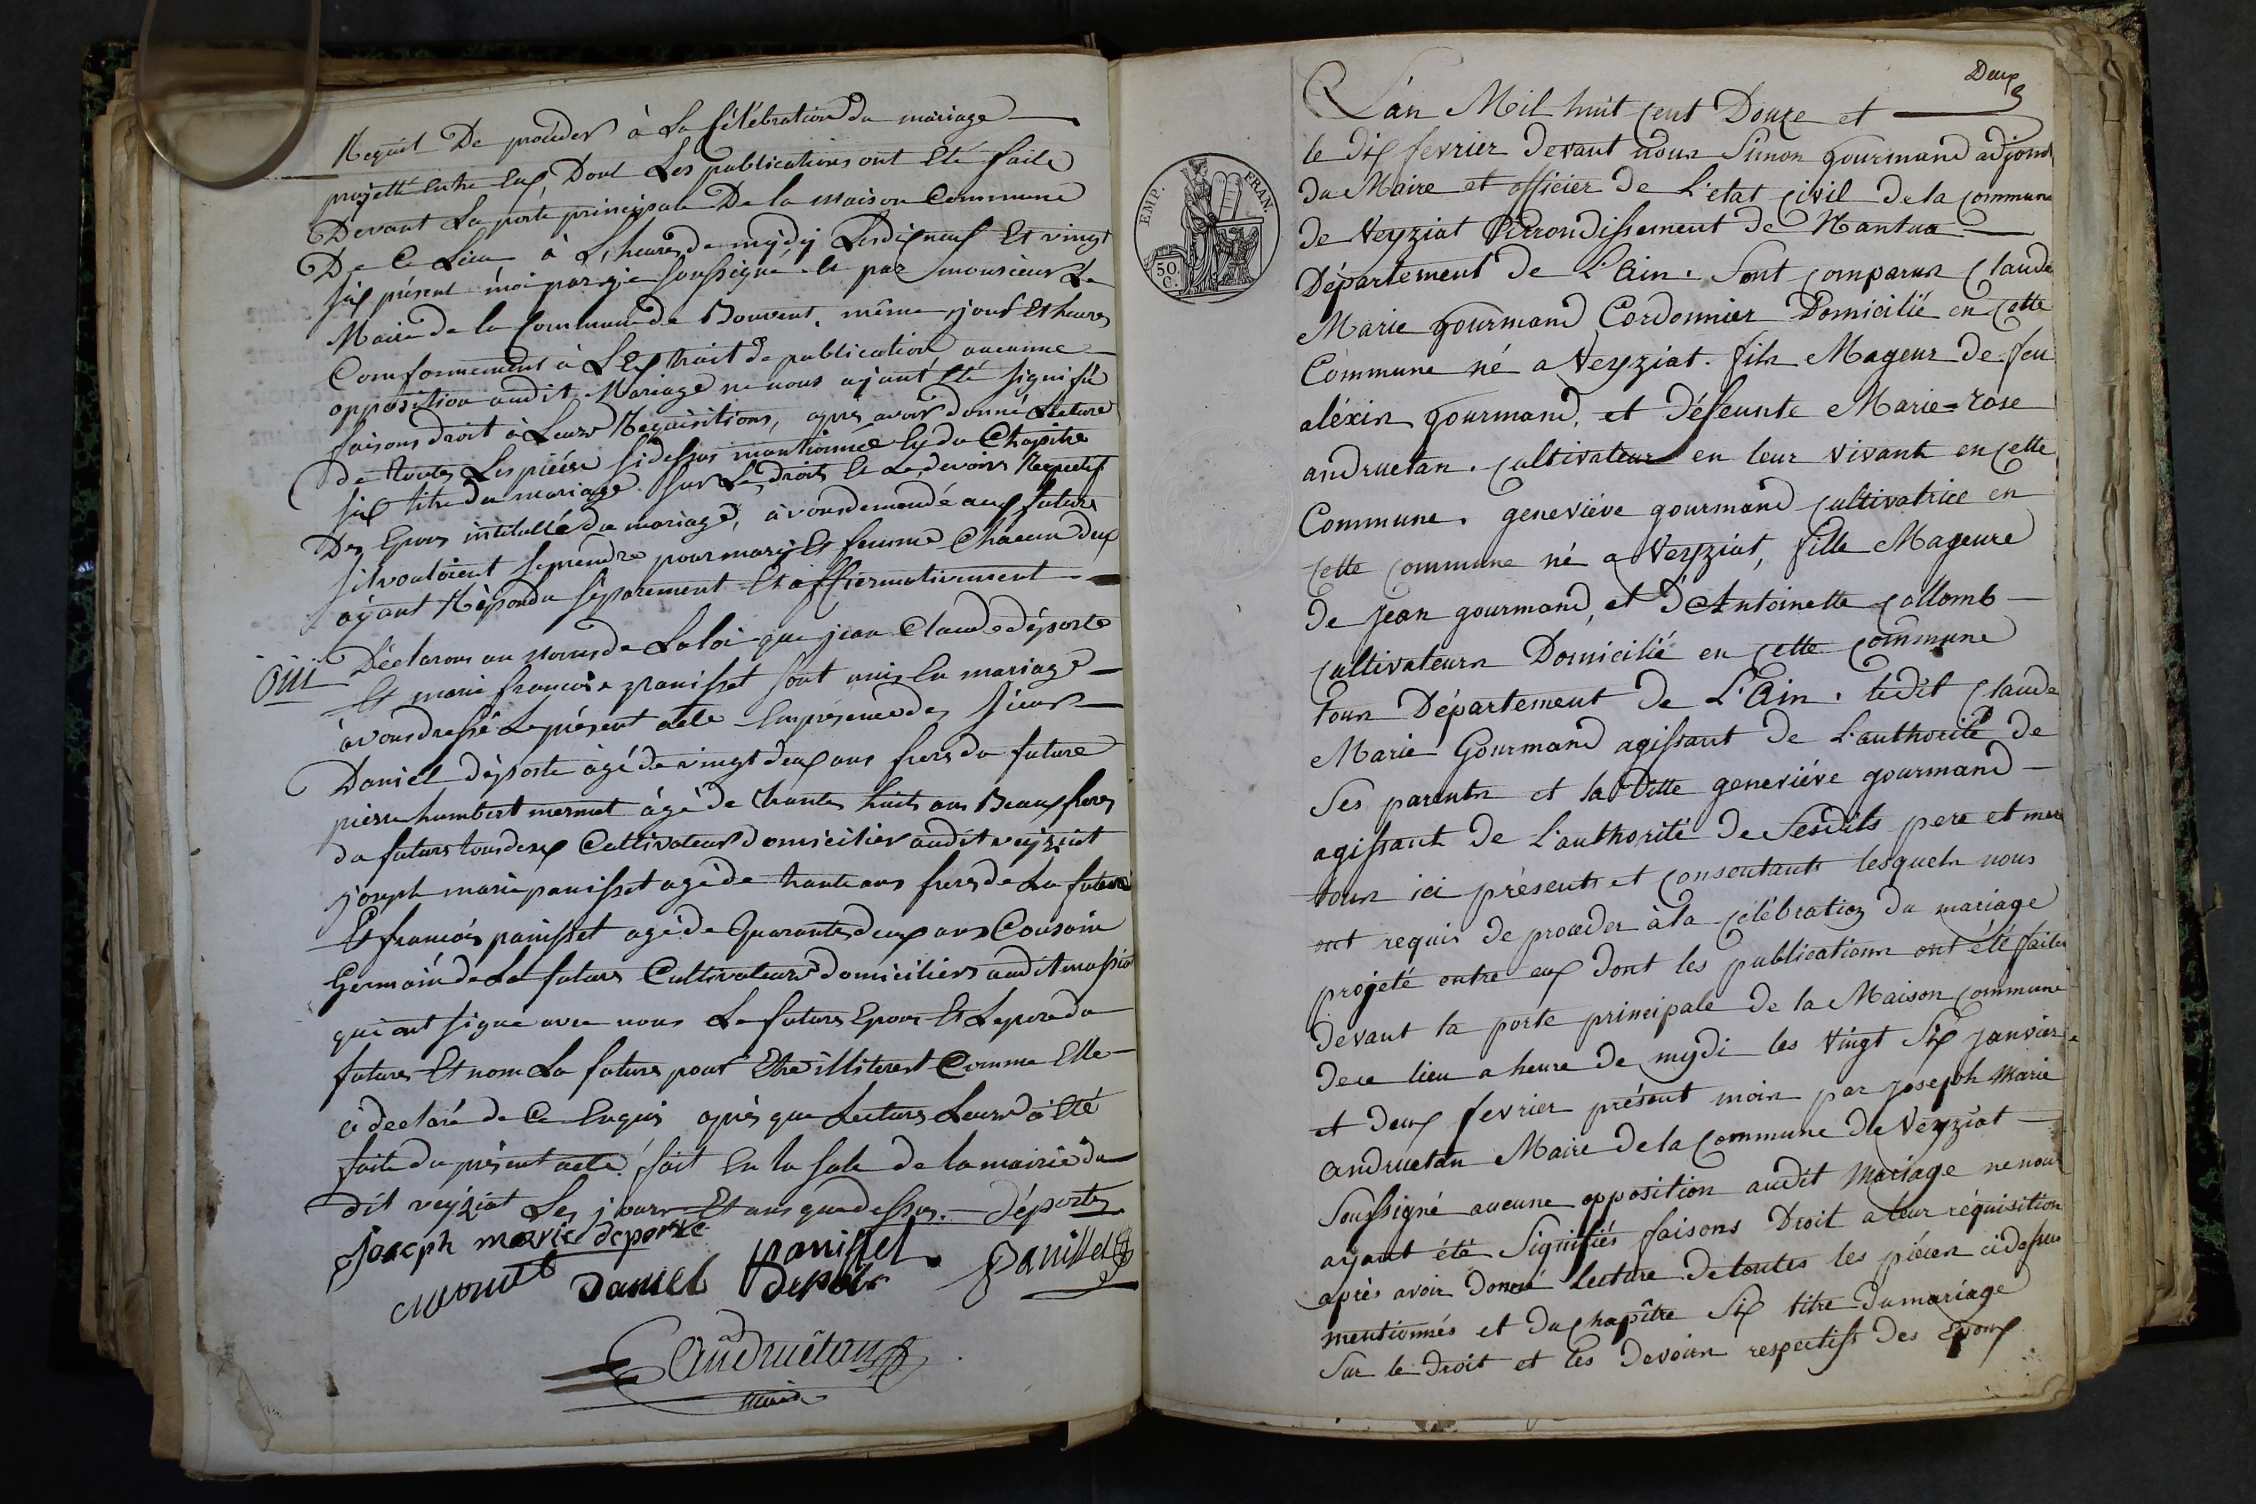 Requit De proceder à La Célébration du mariage
projetté Entre Eux, Dont Les publications ont Eté faite
Devant La porte principale De la Maison Commune
De Ce Lieu à L'heure de mydy Les dix neuf Et vingt
six présent moi par je soussigné Et par monsieur Le
Maire de la Commune de Bouvent, même jour Et heures
Comformement à L'Extrait de publication aucunne
opposition audit Mariage ne nous ayant Eté signifié
faisons droit à Leurs Requisitions, apres avoir donné Lecture
de toutes Les pièces si dessus mantionné Ey du Chapitre
six titre du mariage sur Le droits Et Le devoirs Respectif
Des Epoux intitullée du mariage, àvons demandé aux futurs
s'il vouloient se prendre pour mary Et femme Chacun deux
ayant Répondu séparement Et affiermativement
oui Déclarons au Nom de La loi que jean Claude déporte
Et marie françoise panisset sont unis En mariage
àvons dressé Le présent acte En présence des sieurs
Daniel déporte àgé de vingt deux ans frere du future
pierre humbert mermet àgé de trante huit ans Beaux freres
du futurs tous deux Cultivateurs domicilier audit veyziat
joseph marie panisset agé de trante ans frere de La future
Et françois panisset agé de Quarante deux ans Cousain
Germain de La future Cultivateurs domiciliers audit massia
qui ont signe avec nous Le future Epoux Et Le pere du
future Et nom La future pour Etre illiterest Comme Elle
à déclaré de Ce Enquis après que Lecture Leurs à Eté
faite du présent acte fait En la sale de la mairie du
dit veyziat Les jours Et ans que dessus. déporte
joseph marie deporte
panisset
mermet Daniel deporte panisset
Andruétan
maire
Deux
L'an Mil huit Cent Douze et
le dix fevrier devant nous Simon gourmand adjoint
du Maire et officier de L'etat Civil de la Commune
de Veyziat Arrondissement de Nantua
Département de L'Ain. Sont Comparus Claude
Marie gourmand Cordonnier Domicilié en Cette
Commune né a Veyziat. fils Mageur de feu
aléxis gourmand, et défeunte Marie=rose
andruetan. Cultivateur en leur vivant en Cette
Commune. geneviéve gourmand Cultivatrice en
Cette Commune né a Veyziat, fille Mageure
de Jean gourmand, et D'Antoinette Collomb
Cultivateurs Domicilié en Cette Commune
tous Département de L'Ain. ledit Claude
Marie Gourmand agissant de L'authorité de
Ses parents et la ditte geneviéve gourmand
agissant de L'authorité de Sesdits pere et mere
tous ici présents et Consentants lesquels nous
ont requis de proceder à la Célébration du mariage
projeté entre eux dont les publications ont été faites
devant la porte principale de la Maison Commune
de ce lieu a heure de mydi les vingt Six janvier
et deux fevrier présent mois par Joseph Marie
andruetan Maire de la Commune de Veyziat
Soussigné aucune opposition audit mariage ne nous
ayant été Signifiés faisons Droit a leur réquisition
après avoir donné Lecture de toutes les piéces cidessus
mentionnés et du Chapître Six titre du mariage
Sur le Droit et les Devoirs respectifs des Epoux
EMP. FRAN.
50.
C.